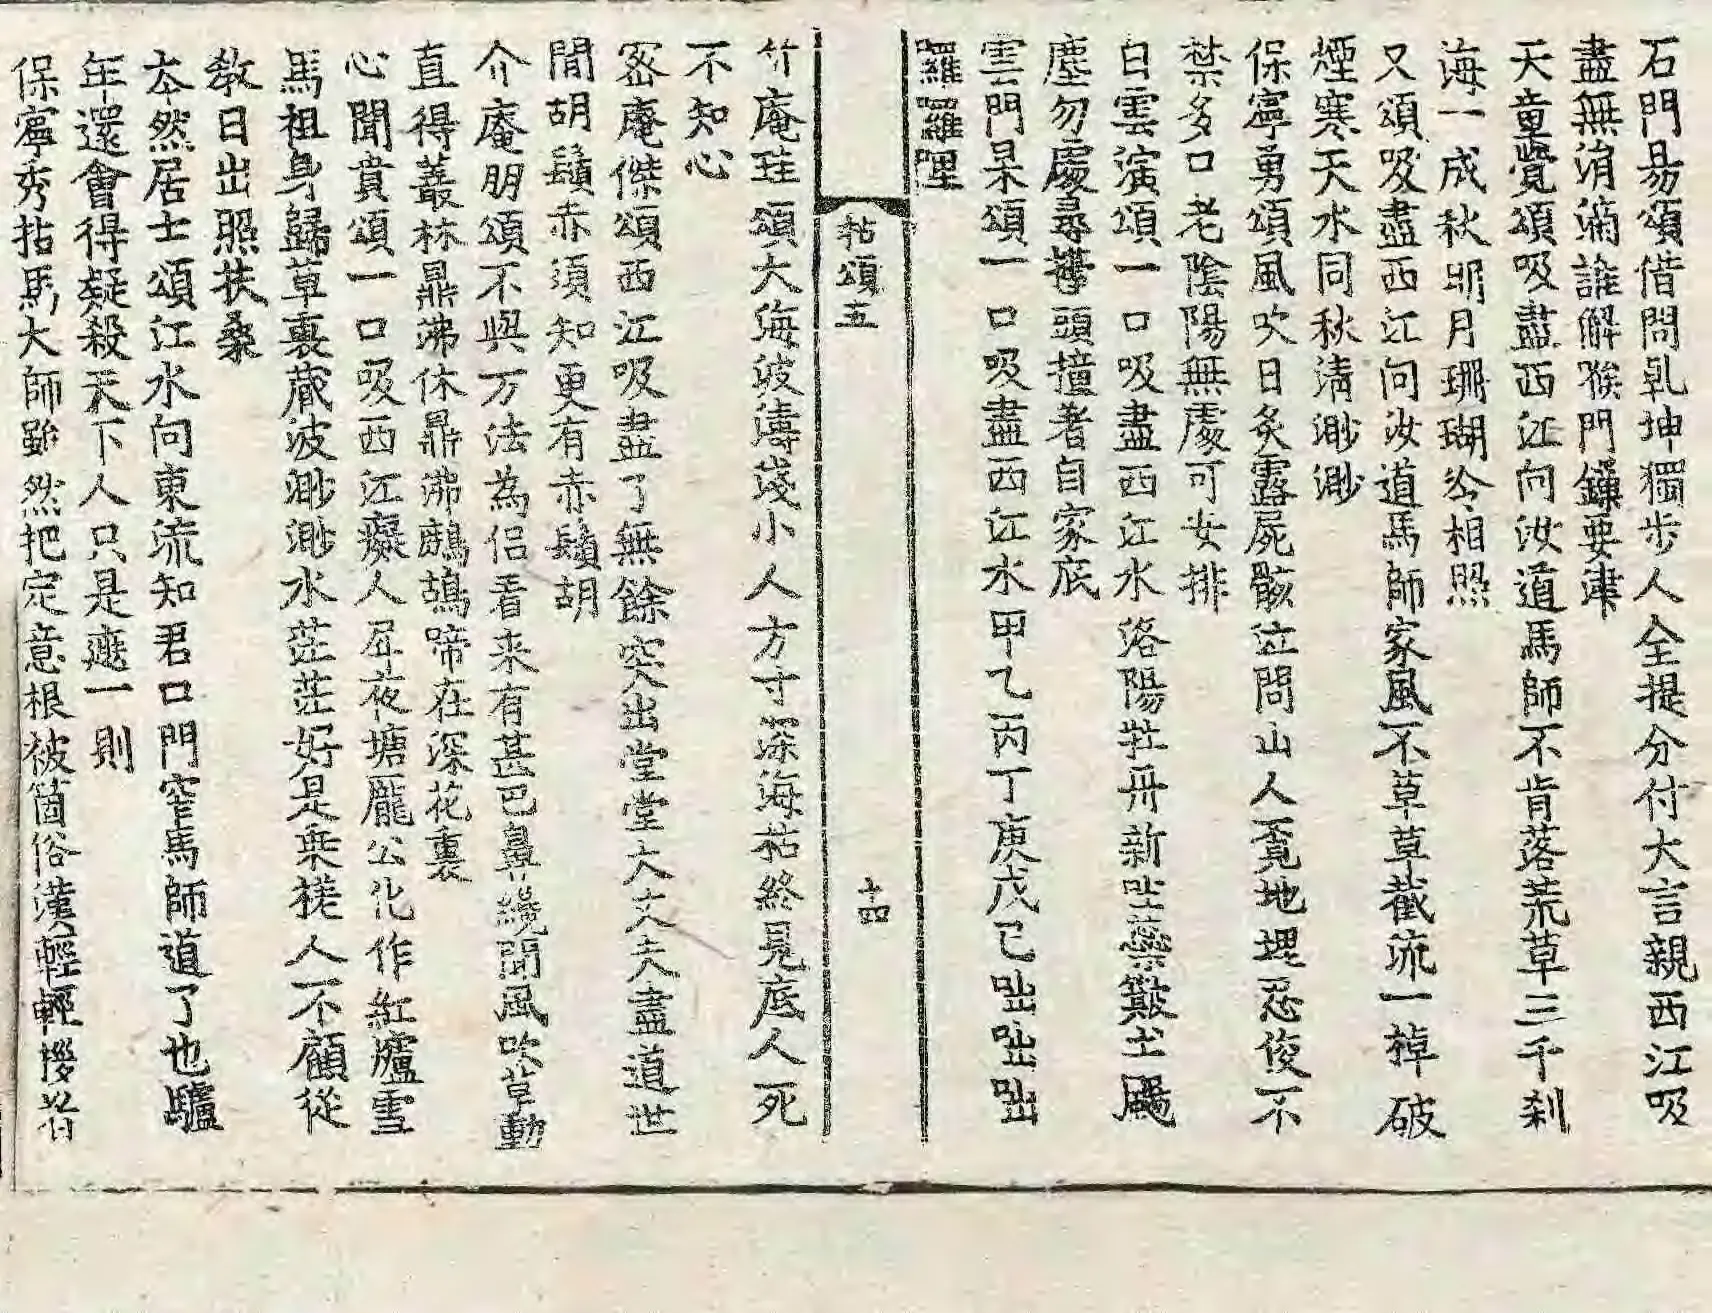 石門易頌借問乹坤獨步人全提分付大言親西江吸
盡無涓滴誰解猴門鏁要津
天童覺頌吸盡西江向汝道馬師不肯落荒草三千刹
海一成秋明月珊瑚冷相照
又頌吸盡西江向汝道馬師家風不草草截流一棹破
煙寒天水同秋清渺渺
保寧勇頌風吹日炙露屍骸泣問山人覔地埋忍俊不
禁多口老陰陽無處可安排
白雲演頌一口吸盡西江水洛陽牡丹新吐蘂簸土颺
塵勿處尋擡頭撞著自家底
雲門杲頌一口吸盡西江水甲乙丙丁庚戊己咄咄咄
囉囉哩
拈頌五
十四
竹庵珪頌大海波濤淺小人方寸深海枯終見底人死
不知心
密庵傑頌西江吸盡了無餘突出堂堂大丈夫盡道世
間胡鬚赤須知更有赤鬚胡
介庵朋頌不與万法為侣看来有甚巴鼻纔聞風吹草動
直得叢林鼎沸休鼎沸鷓鴣啼在深花裏
心聞賁頌一口吸西江癡人戽夜塘龐公化作紅爐雪
馬祖身歸草裏蔵波渺渺水茫茫好是乗槎人不顧從
敎日出照扶桑
夲然居士頌江水向東流知君口門窄馬師道了也驢
年還會得疑殺天下人只是遮一則
保寧秀拈馬大師雖然把定意根被箇俗漢輕輕拶着